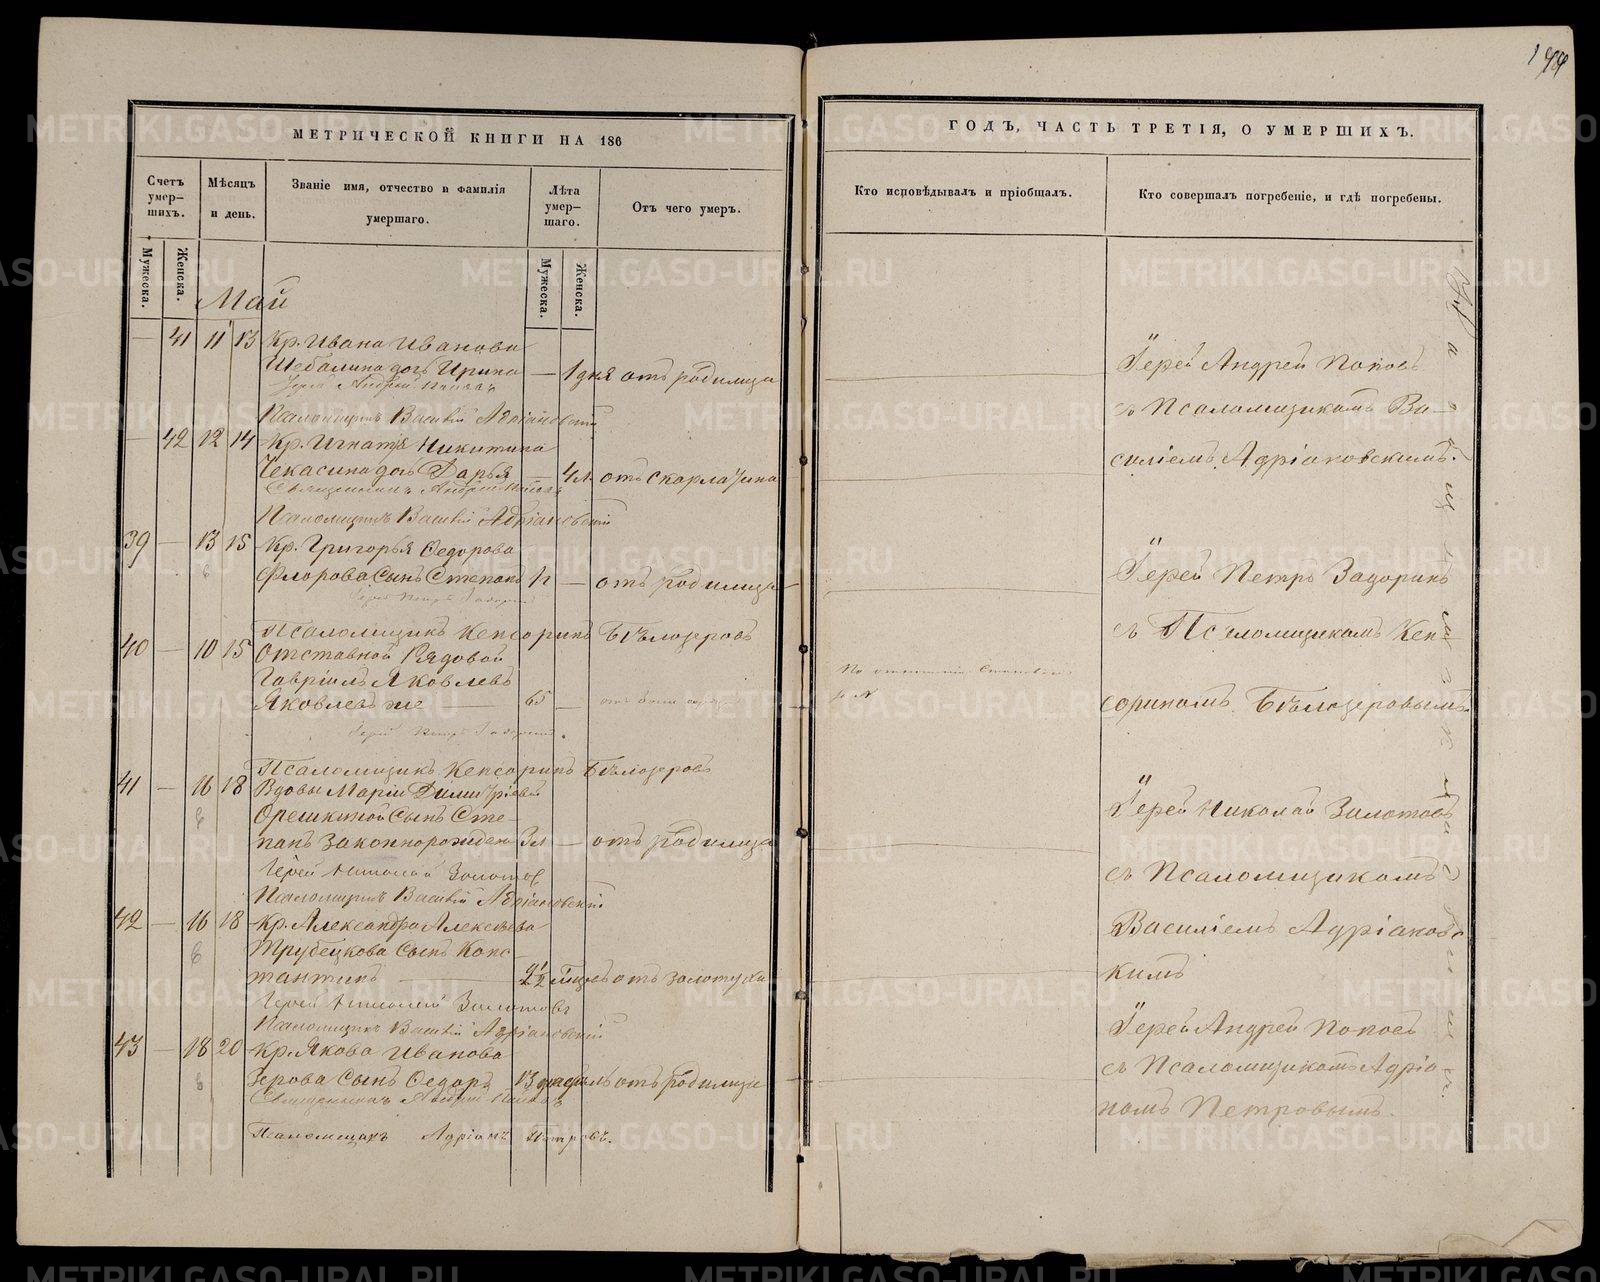 МЕТРИЧЕСКОЙ КНИГИ НА 186
Счетъ умер-шихъ.
Мѣсяцъ и день.
Званіе имя, отчество и фамилія умершаго.
Лѣта умер-шаго.
Отъ чего умеръ.
Мужеска.
Женска.
Мужеска.
Женска.
Май
— 41 11 13 Кр. Ивана Иванова
Шебалина дочь Ирина — 1 дня отъ родимца
Андрей Поповъ
Псаломщикъ Василій Адріановскій
— 42 12 14 Кр. Игнатія Никитина
Чекасина дочь Дарья — 4 л. отъ скарлатина
Священникъ Андрей Поповъ
Псаломщикъ Василій Адріановскій
39 — 13 15 Кр. Григорья Ѳедорова
Флорова Сынъ Степанъ — отъ родимца
Іерей Петръ Задоринъ
Псаломщикъ Кенсоринъ Бѣлозеровъ
40 — 10 15 Отставной Рядовой
Гавріилъ Яковлевъ
Яковлевъ же — 65 —
Іерей Петръ Задоринъ.
Псаломщикъ Кенсоринъ Бѣлозеровъ
41 — 16 18 Вдовы Маріи Димитріевой
Орешкиной Сынъ Сте-
панъ законнорожден 3 л — отъ родимца
Іерей Николай Золотовъ
Псаломщикъ Василій Адріановскій
42 — 16 18 Кр. Александра Алексѣева
Трубецкова Сынъ Конс-
тантинъ — 2 1/2 отъ золотухи
Іерей Николай Золотовъ
Псаломщикъ Василій Адріановскій
43 — 18 20 Кр. Якова Иванова
Зерова Сынъ Ѳедоръ 13 отъ родимца
Священникъ Андрей Поповъ
Псаломщикъ Адріанъ Петровъ.
ГОДЪ, ЧАСТЬ ТРЕТІЯ, О УМЕРШИХЪ.
Кто исповѣдывалъ и пріобщалъ.
Кто совершалъ погребеніе, и гдѣ погребены.
По
Іерей Андрей Поповъ
съ Псаломщикомъ Ва-
силіемъ Адріановскимъ.
Іерей Петръ Задоринъ
съ Псаломщикомъ Кен-
сориномъ Бѣлозеровымъ
Іерей Николай Золотовъ
съ Псаломщикомъ
Василіемъ Адріановс
кимъ
Іерей Андрей Поповъ
съ Псаломщикомъ Адріа-
номъ Петровымъ.
METRIKI.GASO-URAL.RU